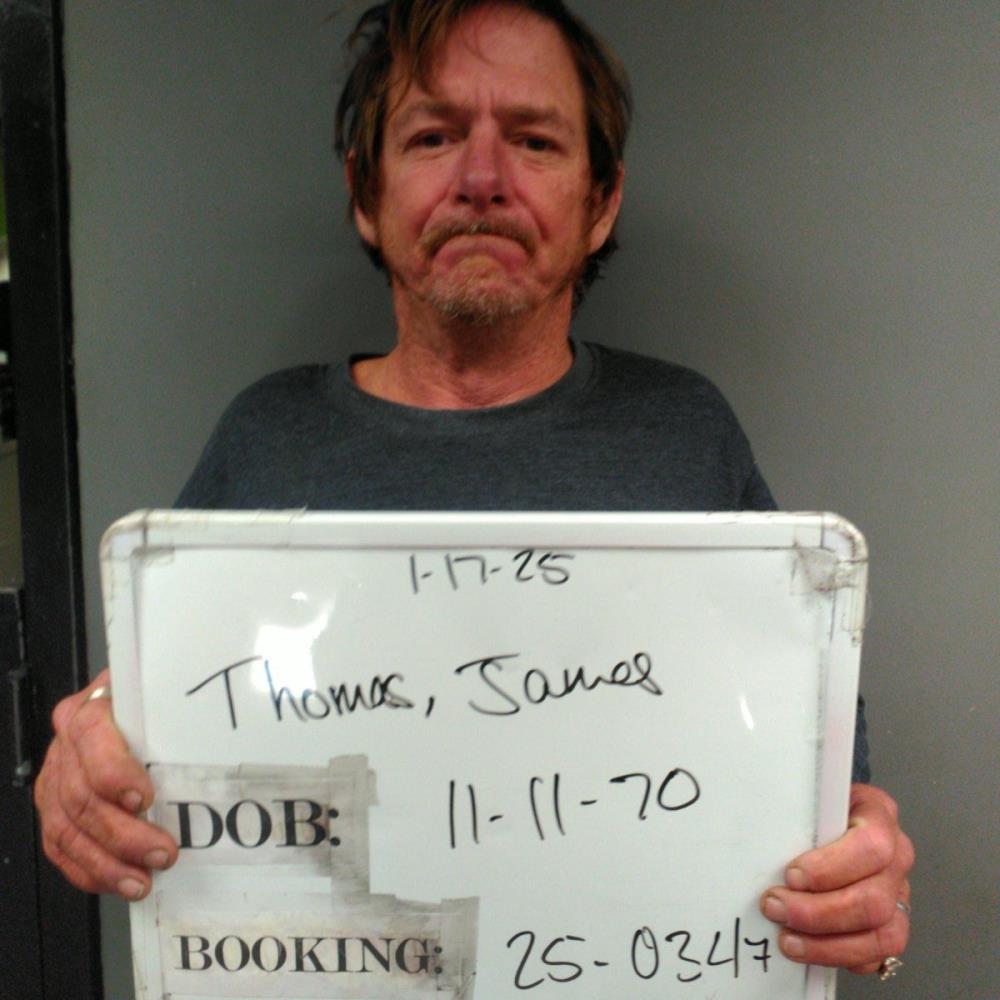 1-17-25
Thomas, James
DOB: 11-11-70
BOOKING: 25-0347